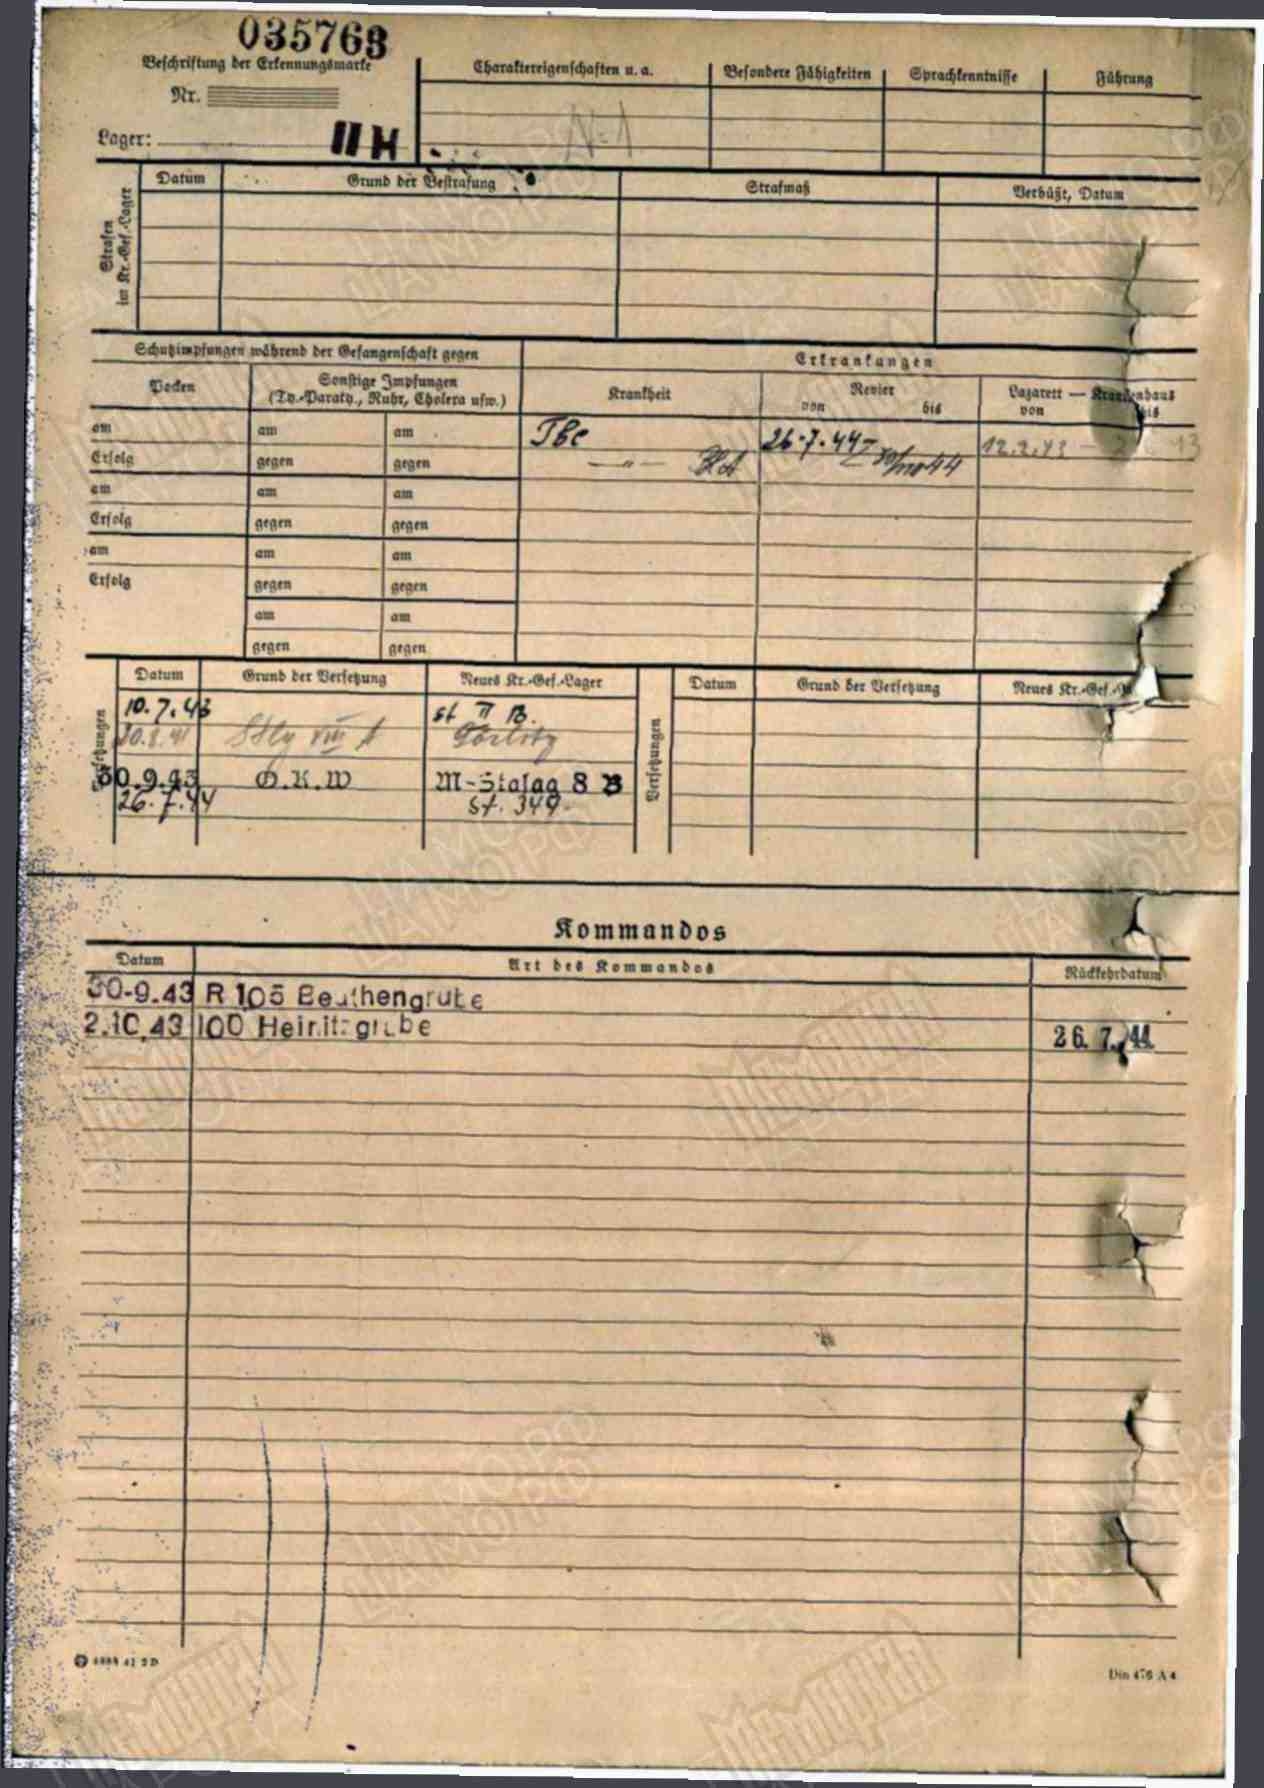 035768
Beschriftung der Erkennungsmarke
Nr.
Lager: II H
Charaktereigenschaften u. a.
Besondere Fähigkeiten
Sprachkenntnisse
Führung
Strafen im Kr.-Gef.-Lager
Datum
Grund der Bestrafung
Strafmaß
Verbüßt, Datum
Schutzimpfungen während der Gefangenschaft gegen
Erkrankungen
Pocken
Sonstige Impfungen
(Ty.-Paraty., Ruhr, Cholera usw.)
Krankheit
Revier
von bis
Lazarett — Krankenhaus
von bis
am am am
Tbc 26.7.44 12.2.43
Erfolg gegen gegen
— " — 44
am am am
Erfolg gegen gegen
am am am
Erfolg gegen gegen
am am
gegen gegen
Versetzungen
Datum Grund der Versetzung Neues Kr.-Gef.-Lager
10.7.43 st II B.
Görlitz
30.9.43 O.K.W M-Stalag 8 B
26.7.44 St. 349
Versetzungen
Datum Grund der Versetzung Neues Kr.-Gef.
Kommandos
Datum Art des Kommandos Rückkehrdatum
30.9.43 R 105 Beuthengrube
2.10.43 100 Heinitzgrube 26. 7. 44.
Din 476 A 4
Мемориал
ЦАМО РФ